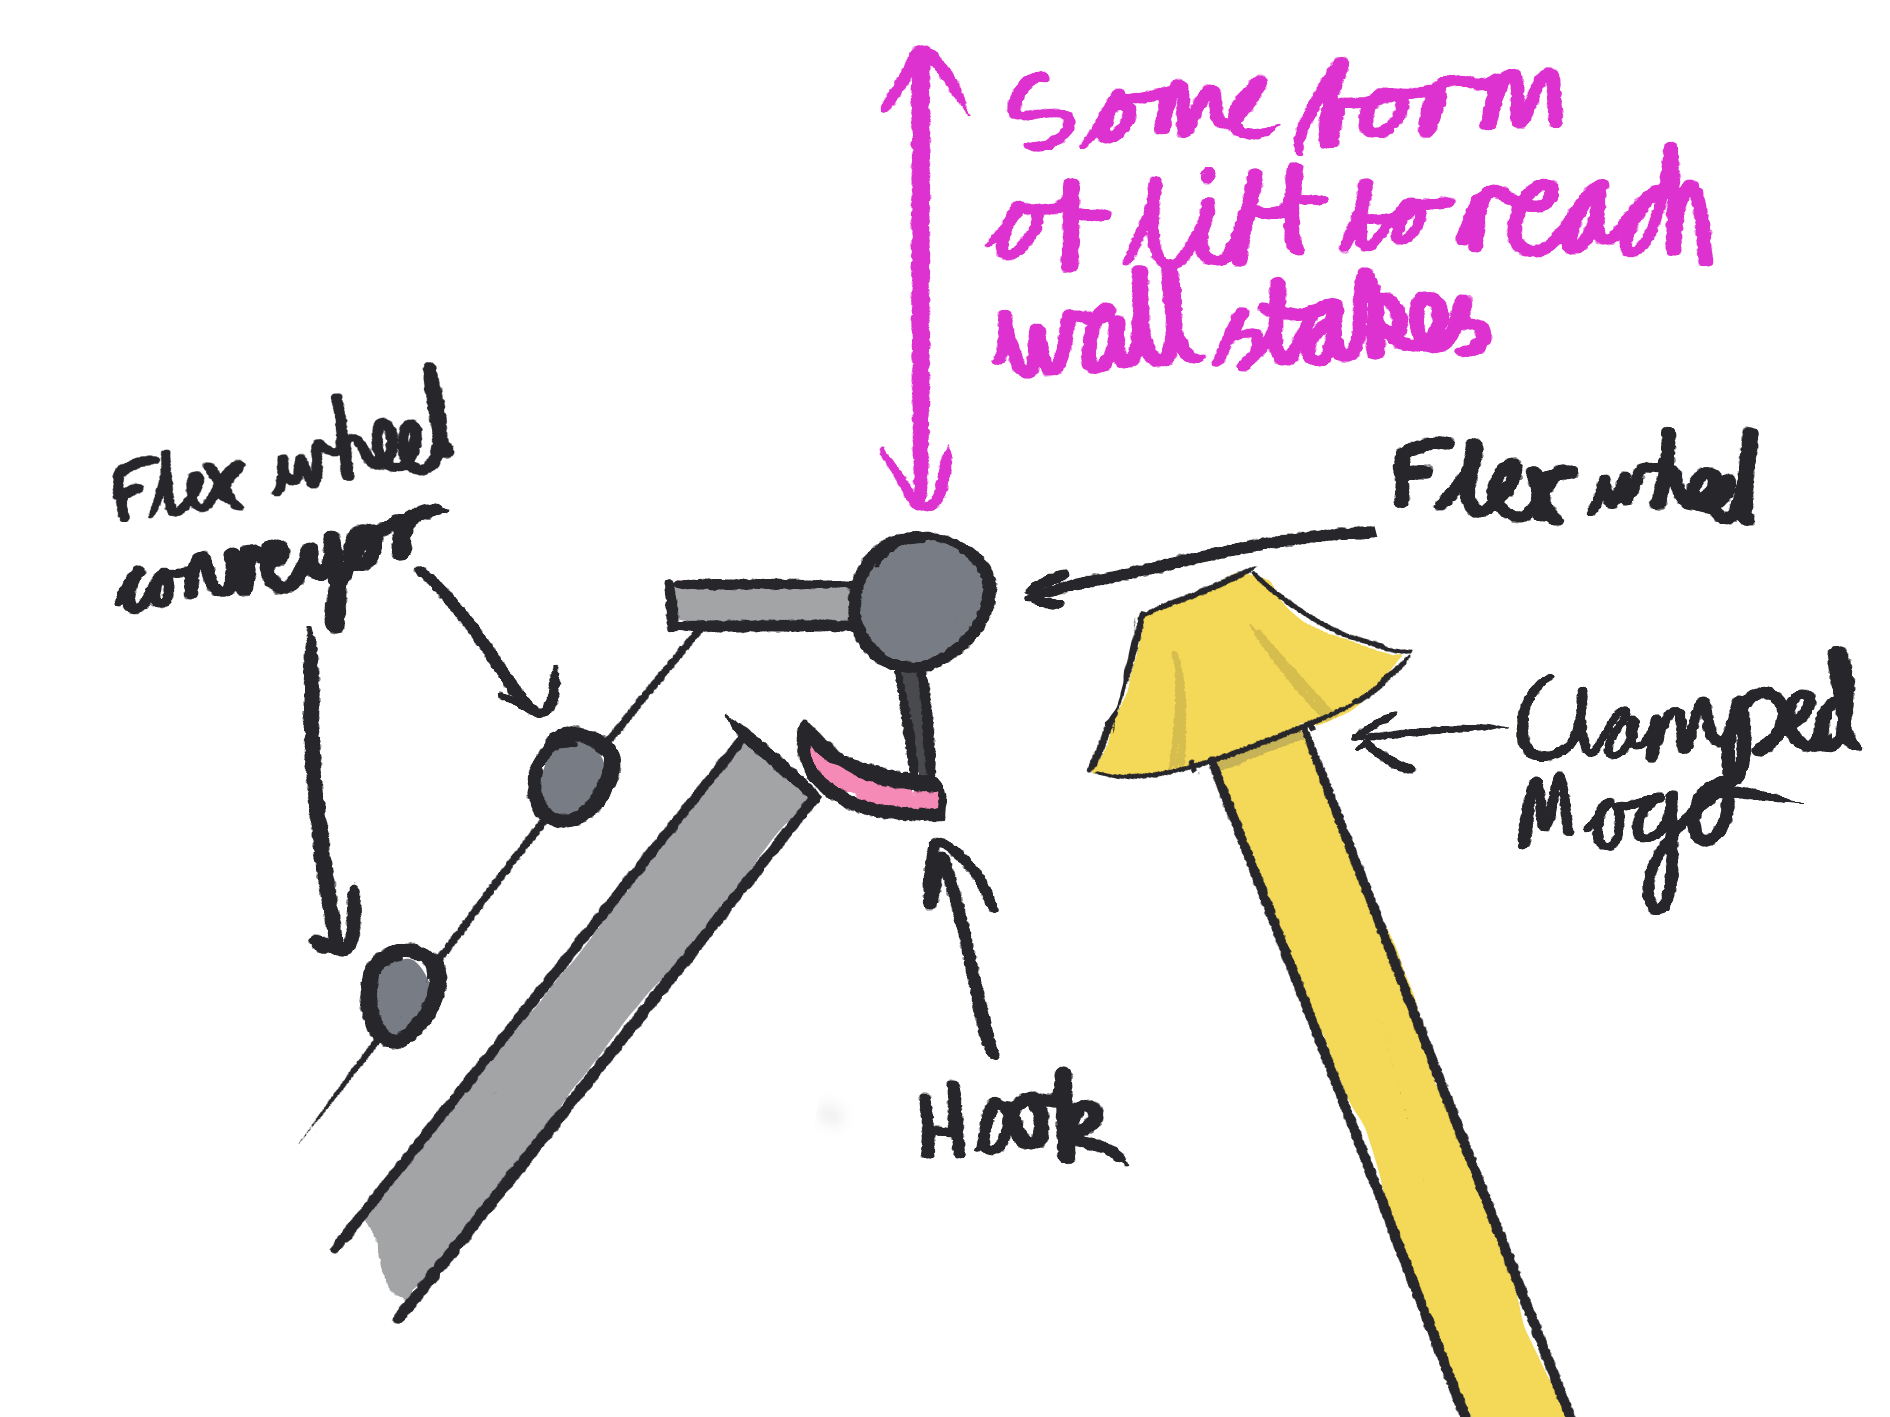 Some form
of lift to reach
wall stakes
Flex wheel
conveyor
Flex wheel
Clamped
Mogo
Hook